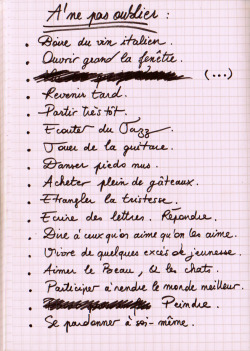 A' ne pas oublier :
. Boire du vin italien.
. Ouvrir grand la fenêtre.
. (...)
. Revenir tard.
. Partir très tôt.
. Ecouter du Jazz
. Jouer de la guitare.
. Danser pieds nus.
. Acheter plein de gâteaux.
. Etrangler la tristesse
. Ecrire des lettres. Répondre.
. Dire à ceux qu'on aime qu'on les aime.
. Vivre de quelques excès de jeunesse.
. Aimer le Beau, & les chats.
. Participer à rendre le monde meilleur.
. Peindre.
. Se pardonner à soi-même.